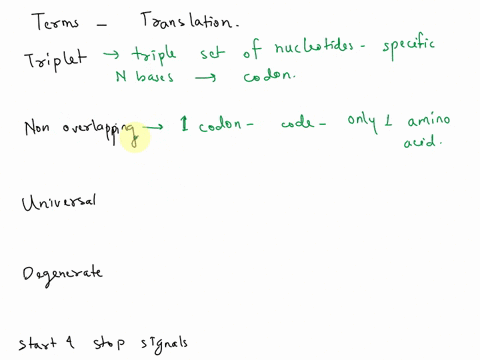 Terms - Translation.
Triplet → triple set of nucleotides - specific
N bases → codon.
Non overlapping → 1 codon - code - only 1 amino
acid.
Universal
Degenerate
start & stop signals